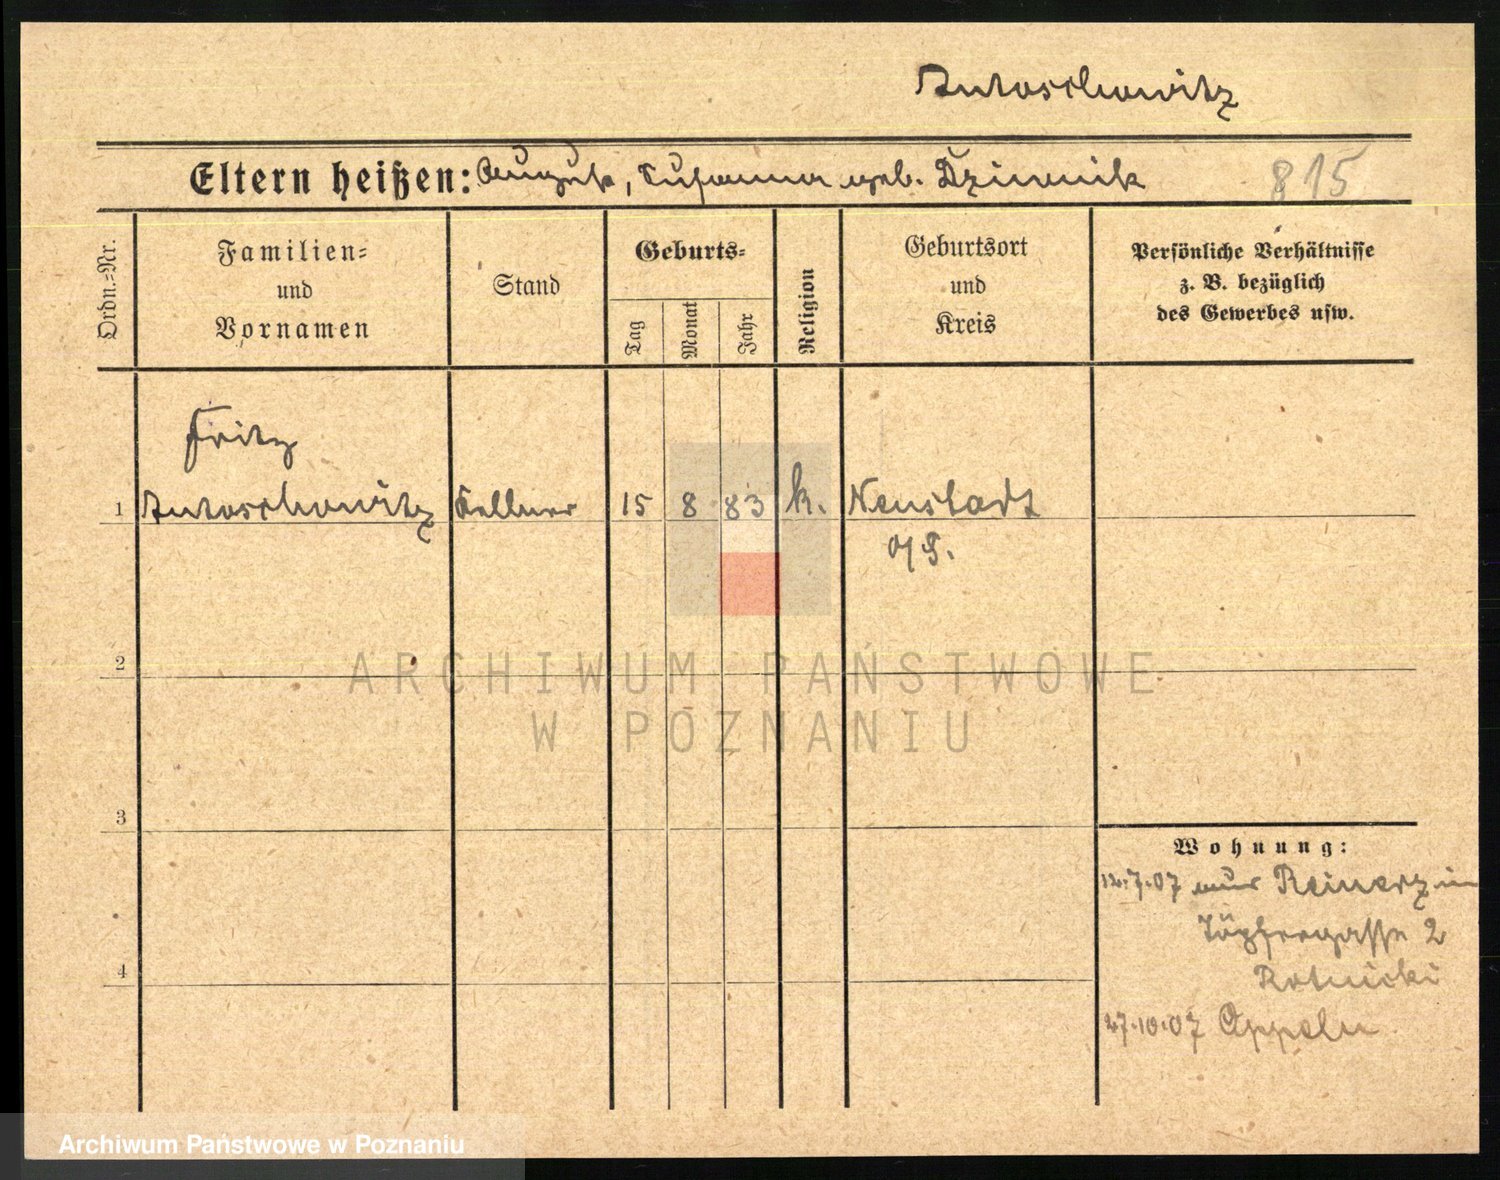 Antoschowitz
Eltern heißen: August, Susanna geb. Dziamik
815
Ordn.=Nr.
Familien=
und
Vornamen
Stand
Geburts=
Tag
Monat
Jahr
Religion
Geburtsort
und
Kreis
Persönliche Verhältnisse
z. B. bezüglich
des Gewerbes usw.
Fritz
1 Antoschowitz Kellner 15 8 83 k. Neustadt
O/S.
2
ARCHIWUM PAŃSTWOWE
W POZNANIU
3
Wohnung:
12.7.07 aus Reinerz in
Töpfergasse 2
Rotnicki
4
27.10.07 Oppeln
Archiwum Państwowe w Poznaniu